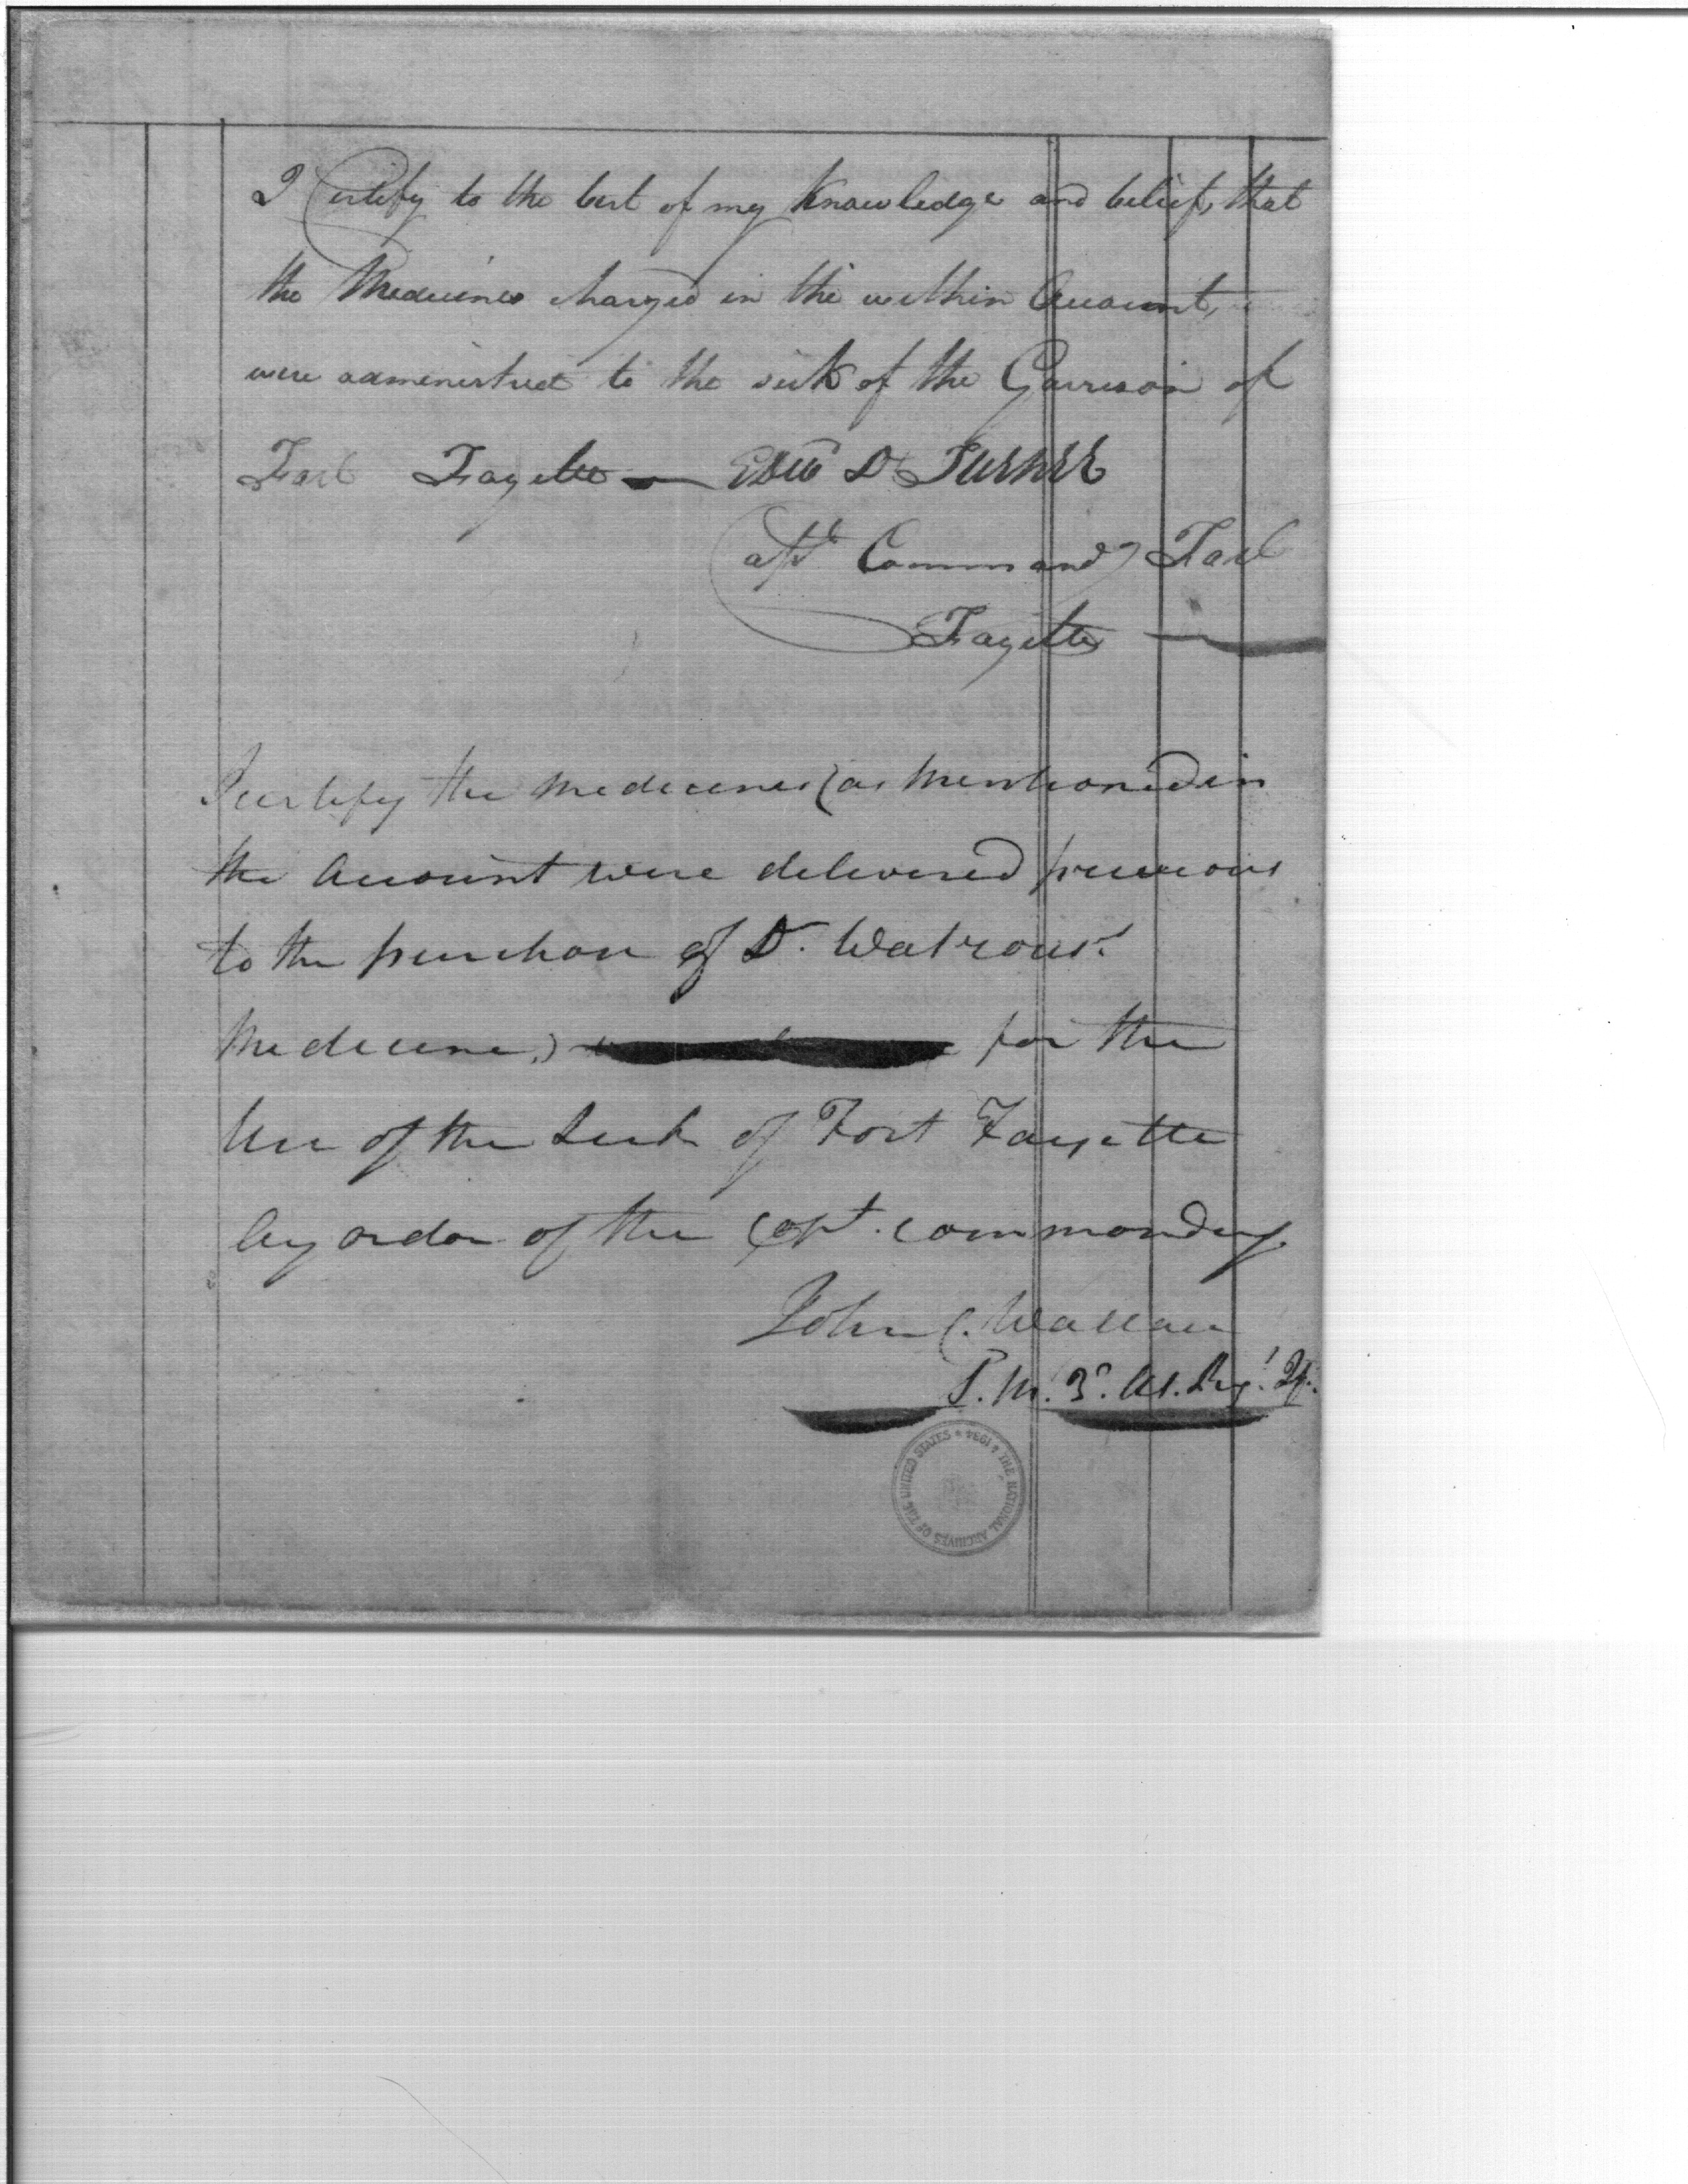 I Certify to the best of my Knowledge and belief, that
the Medicines charged in the within Account,
were administred to the sick of the Garrison of
Fort Fayette — Edwd D Turner
Capt Commandg Fort
Fayette
I certify the medecenes (as mentioned in
the Account were delivered previous
to the purchase of Dr. Watrous's
Medecene,) for the
Use of the Sick of Fort Fayette
by order of the Capt. commanding.
John C. Wallace
S. M. 3d. U.S. Regt.
THE NATIONAL ARCHIVES OF THE UNITED STATES * 1934 *